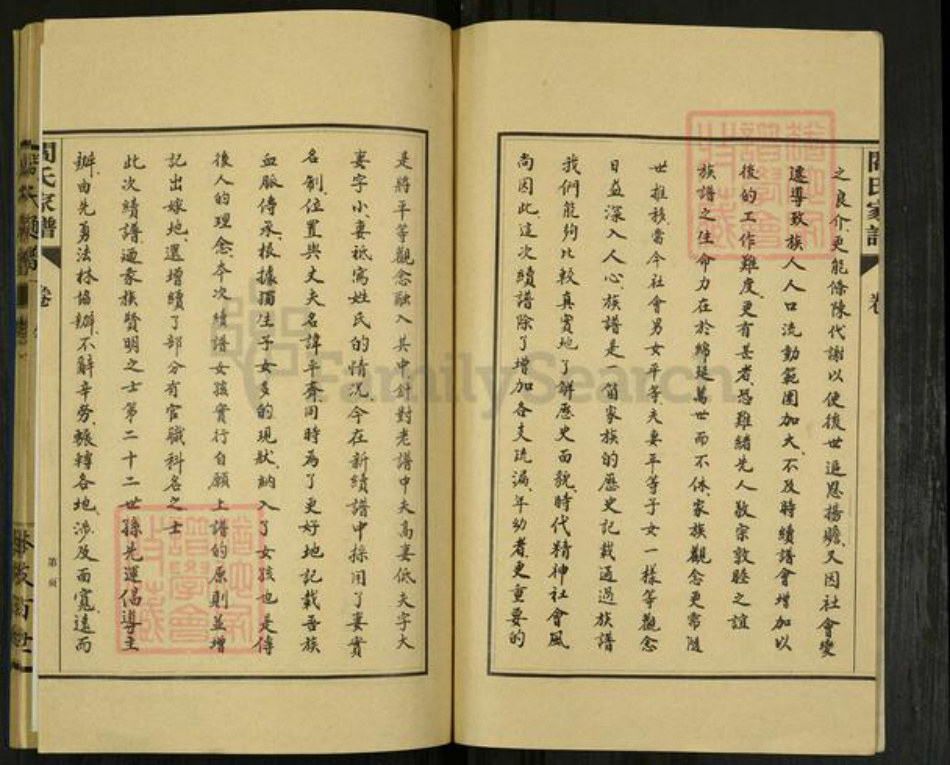 之良介更能條陳代謝以使後世追思揚瞻、又因社會變
遷導致族人人口流動範圍加大、不及時續譜會增加以
後的工作難度、更有甚者、恐難緒先人敬宗敦睦之誼
族譜之生命力在於綿延萬世而不休、家族觀念更需隨
世推移當今社會男女平等、夫妻平等子女一樣等觀念
日益深入人心、族譜是一個家族的歷史記載通過族譜
我們能夠比較真實地了解歷史面貌、時代精神社會風
尚因此、這次續譜除了增加各支疏漏、年幼者、更重要的
是將平等觀念融入其中針對老譜中夫高妻低夫字大
妻字小、妻祇寫姓氏的情況、今在新續譜中採用了妻實
名制、位置與丈夫名諱平齊、同時為了更好地記載吾族
血脈傳承、根據獨生子女多的現狀、納入了女孩也是傳
後人的理念、本次續譜女孩實行自願上譜的原則並增
記出嫁地、還增續了部分有官職科名之士
此次續譜、通家族賢明之士第二十二世孫先運倡導主
辦、由先勇法林協辦、不辭辛勞、輾轉各地、涉及面寬、遠而
閻氏家譜
卷
第 頁
FamilySearch